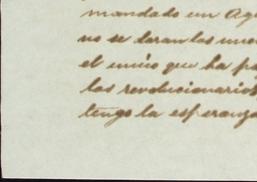 mandado un Agu
no se daran las
el unico que ha
los revolucionarios
tengo la esperanza